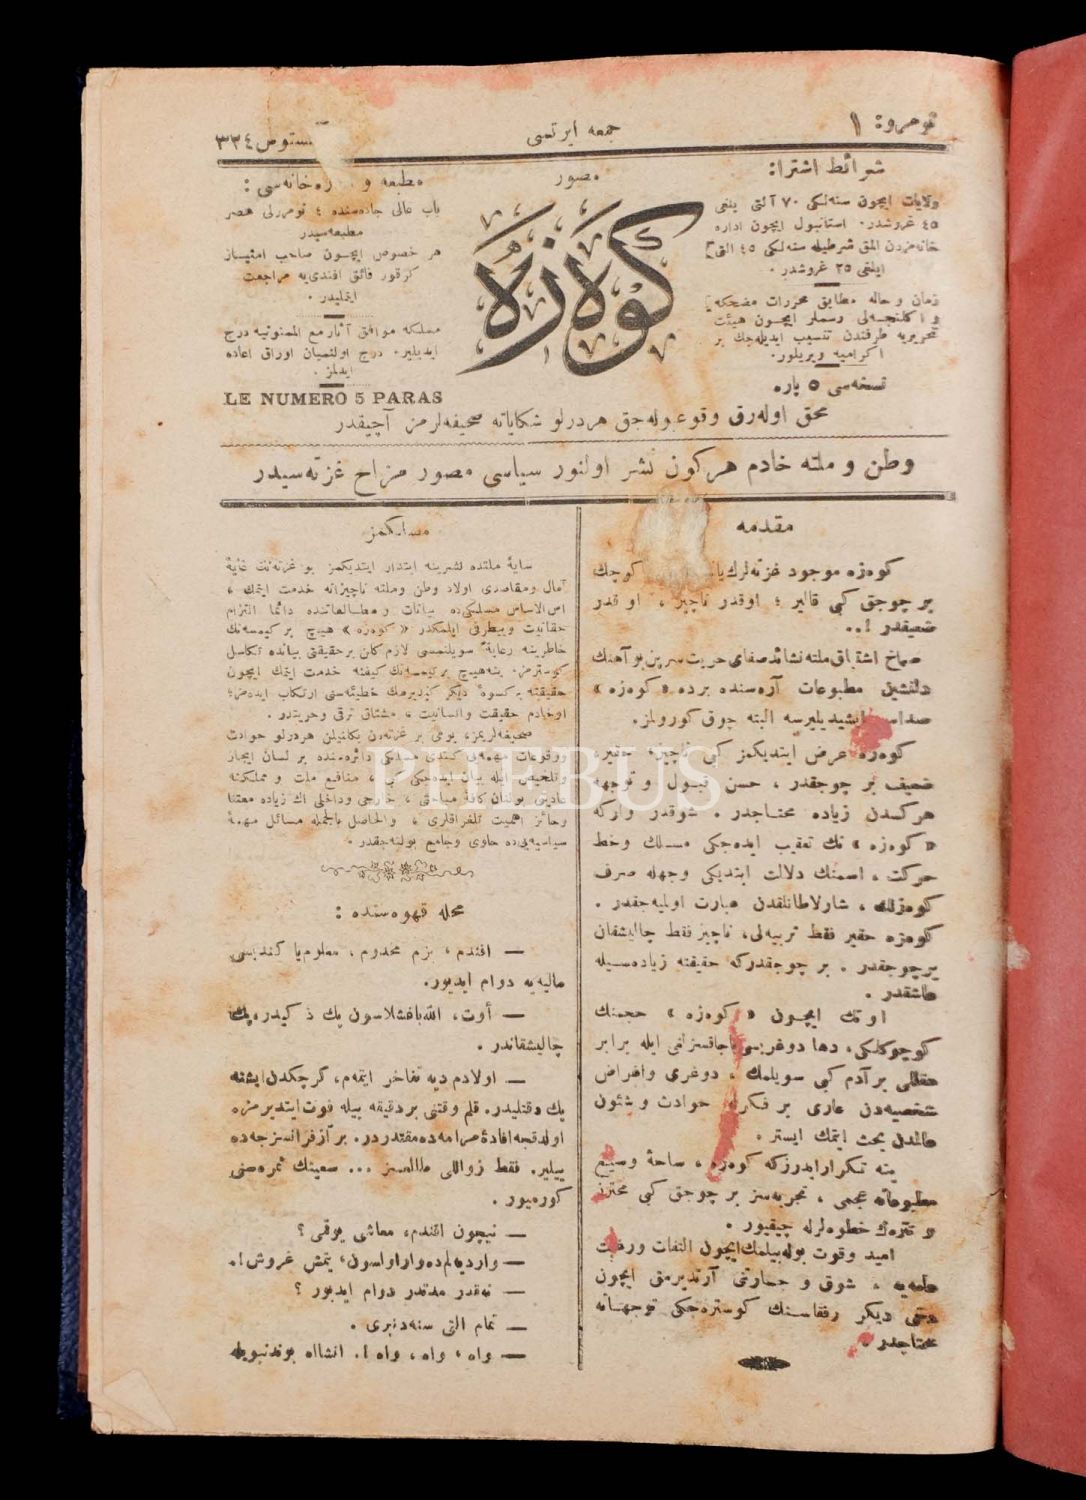 نومرو: ١
جمعه ايرتسی
٣٢٤
شرائط اشترا:
ولايات ايچون سنه‌لكی ٧٠ آلتی آيلغی
٤٥ غروشدر. استانبول ايچون اداره
خانه‌مزدن آلمق شرطيله سنه‌لكی ٤٥ التی
آيلغی ٢٥ غروشدر.
زمان و حاله مطابق محررات مضحكه
و اكلنجه‌لی رسملر ايچون هيئت
تحريريه طرفندن تنسيب ايديله‌جك بر
اكراميه ويريلور.
نسخه‌سی ٥ پاره
مصور
كوه‌زه
مطبعه و
باب عالی جاده‌سنده ٤ نومرولی عصر
مطبعه‌سيدر
هر خصوص ايچون صاحب امتياز
كرقور فائق افندی‌يه مراجعت
ايتمليدر.
مسلكه موافق آثار مع الممنونيه درج
ايديلير. درج اولنميان اوراق اعاده
ايدلمز.
LE NUMERO 5 PARAS
محق اوله‌رق وقوعبوله‌جق هر درلو شكاياته صحيفه‌لرمز آچيقدر
وطن و ملته خادم هركون نشر اولنور سياسی مصور مزاح غزته‌سيدر
مقدمه
كوه‌زه موجود غزته‌لرك كوچك
بر چوجق كبی قالير ؛ اوقدر ناچيز ، او قدر
ضعيفدر !..
صماخ اشتياق ملته نشائد صفای حريت سرين بو آهنك
دلنشين مطبوعات آره‌سنده برده «كوه‌زه»
ايشيديليرسه البته چوق كورولمز.
كوه‌زه عرض ايتديكمز كبی ناچيز، حقير،
ضعيف بر چوجقدر ، حسن قبول و توجهه
هركسدن زياده محتاجدر . شوقدر واركه
«كوه‌زه» نك تعقيب ايده‌جكی مسلك وخط
حركت ، اسمنك دلالت ايتديكی وجهله صرف
كوه‌زه‌لك ، شارلاطانلقدن عبارت اولميه‌جقدر .
كوه‌زه حقير فقط تربيه‌لی، ناچيز فقط چاليشقان
برچوجقدر . بر چوجقدركه حقيقته زياده‌سيله
عاشقدر .
اونك ايچون «كوه‌زه» حجمنك
كوچوكلكی، دها دوغريسی ايله برابر
عقللی بر آدم كبی سويلمك ، دوغری واغراض
شخصيه‌دن عاری بر فكرله حوادث و شئون
عالمدن بحث ايتمك ايستر .
ينه تكرار ايدرزكه كوه‌زه ، ساحهٔ وسيع
مطبوعاته عجمی ، تجربه‌سز بر چوجق كبی محترز
و تتره‌ك خطوه‌لرله چيقيور .
اميد وقوت بوله‌بيلمك ايچون التفات ورغبت
عامه‌يه ، شوق و جسارتی آرتديرمق ايچون
دخی ديكر رفقاسنك كوستره‌جكی توجهاته
محتاجدر .
مسلكمز
سايهٔ ملتده نشرينه ابتدار ايتديكمز بو غزته‌نك غايهٔ
آمال ومقاصدی اولاد وطن وملته ناچيزانه خدمت ايتمك ،
اس الاساس مسلكی‌ده بيانات و مطالعاتنده دائما التزام
حقانيت وبيطرفی ايلمكدر «كوه‌زه» هيچ بر كيمسه‌نك
خاطرينه رعايةً سويلنمسی لازم كلن برحقيقتی بيانده تكاسل
كوسترمز. ينه هيچ بر كيمسه‌نك كيفنه خدمت ايتمك ايچون
حقيقته بر كسوهٔ ديكر كيديرمك خطيئه‌سنی ارتكاب ايده‌مز؛
او خادم حقيقت وانسانيت ، مشتاق ترقی وحريتدر .
صحيفه‌لريمز، يومی بر غزته‌دن بكلنيلن هردرلو حوادث
ووقوعات مهمه‌يی كندی مسلكی دائره‌سنده بر لسان ايجاز
وتلخيص ايله بيان ايده‌جكی كبی ، منافع ملت و مملكته
عائد بولنان كافهٔ مباحثی ، خارجی وداخلی اك زياده معتنا
وحائز اهميت تلغرافلری ، والحاصل بالجمله مسائل مهمهٔ
سياسيه‌يی‌ده حاوی وجامع بولنه‌جقدر .
محله قهوه‌سنده :
— افندم ، بزم مخدوم ، معلوم‌يا كنديسی
ماليه‌يه دوام ايديور.
— أوت، الله باغشلاسون پك ذكيدر، پك
چاليشقاندر .
— اولادم ديه تفاخر ايتمه‌م، كرچكدن ايشنه
پك دقتليدر. قلم وقتنی بردقيقه بيله فوت ايتديرمزه
اولدقجه افادهٔ مرامه‌ده مقتدردر. بر آز فرانسزجه‌ده
بيلير. فقط زواللی طالعسز ... سعينك ثمره‌سنی
كورميور .
— نيچون افندم، معاشی يوقمی ؟
— وارديه‌لم‌ده‌وار اولسون، يتمش غروش !.
— نه‌قدر مدتدر دوام ايديور ؟
— تمام التی سنه‌دنبری .
— واه، واه، واه !. انشاالله بوندنبويله
PHEBUS